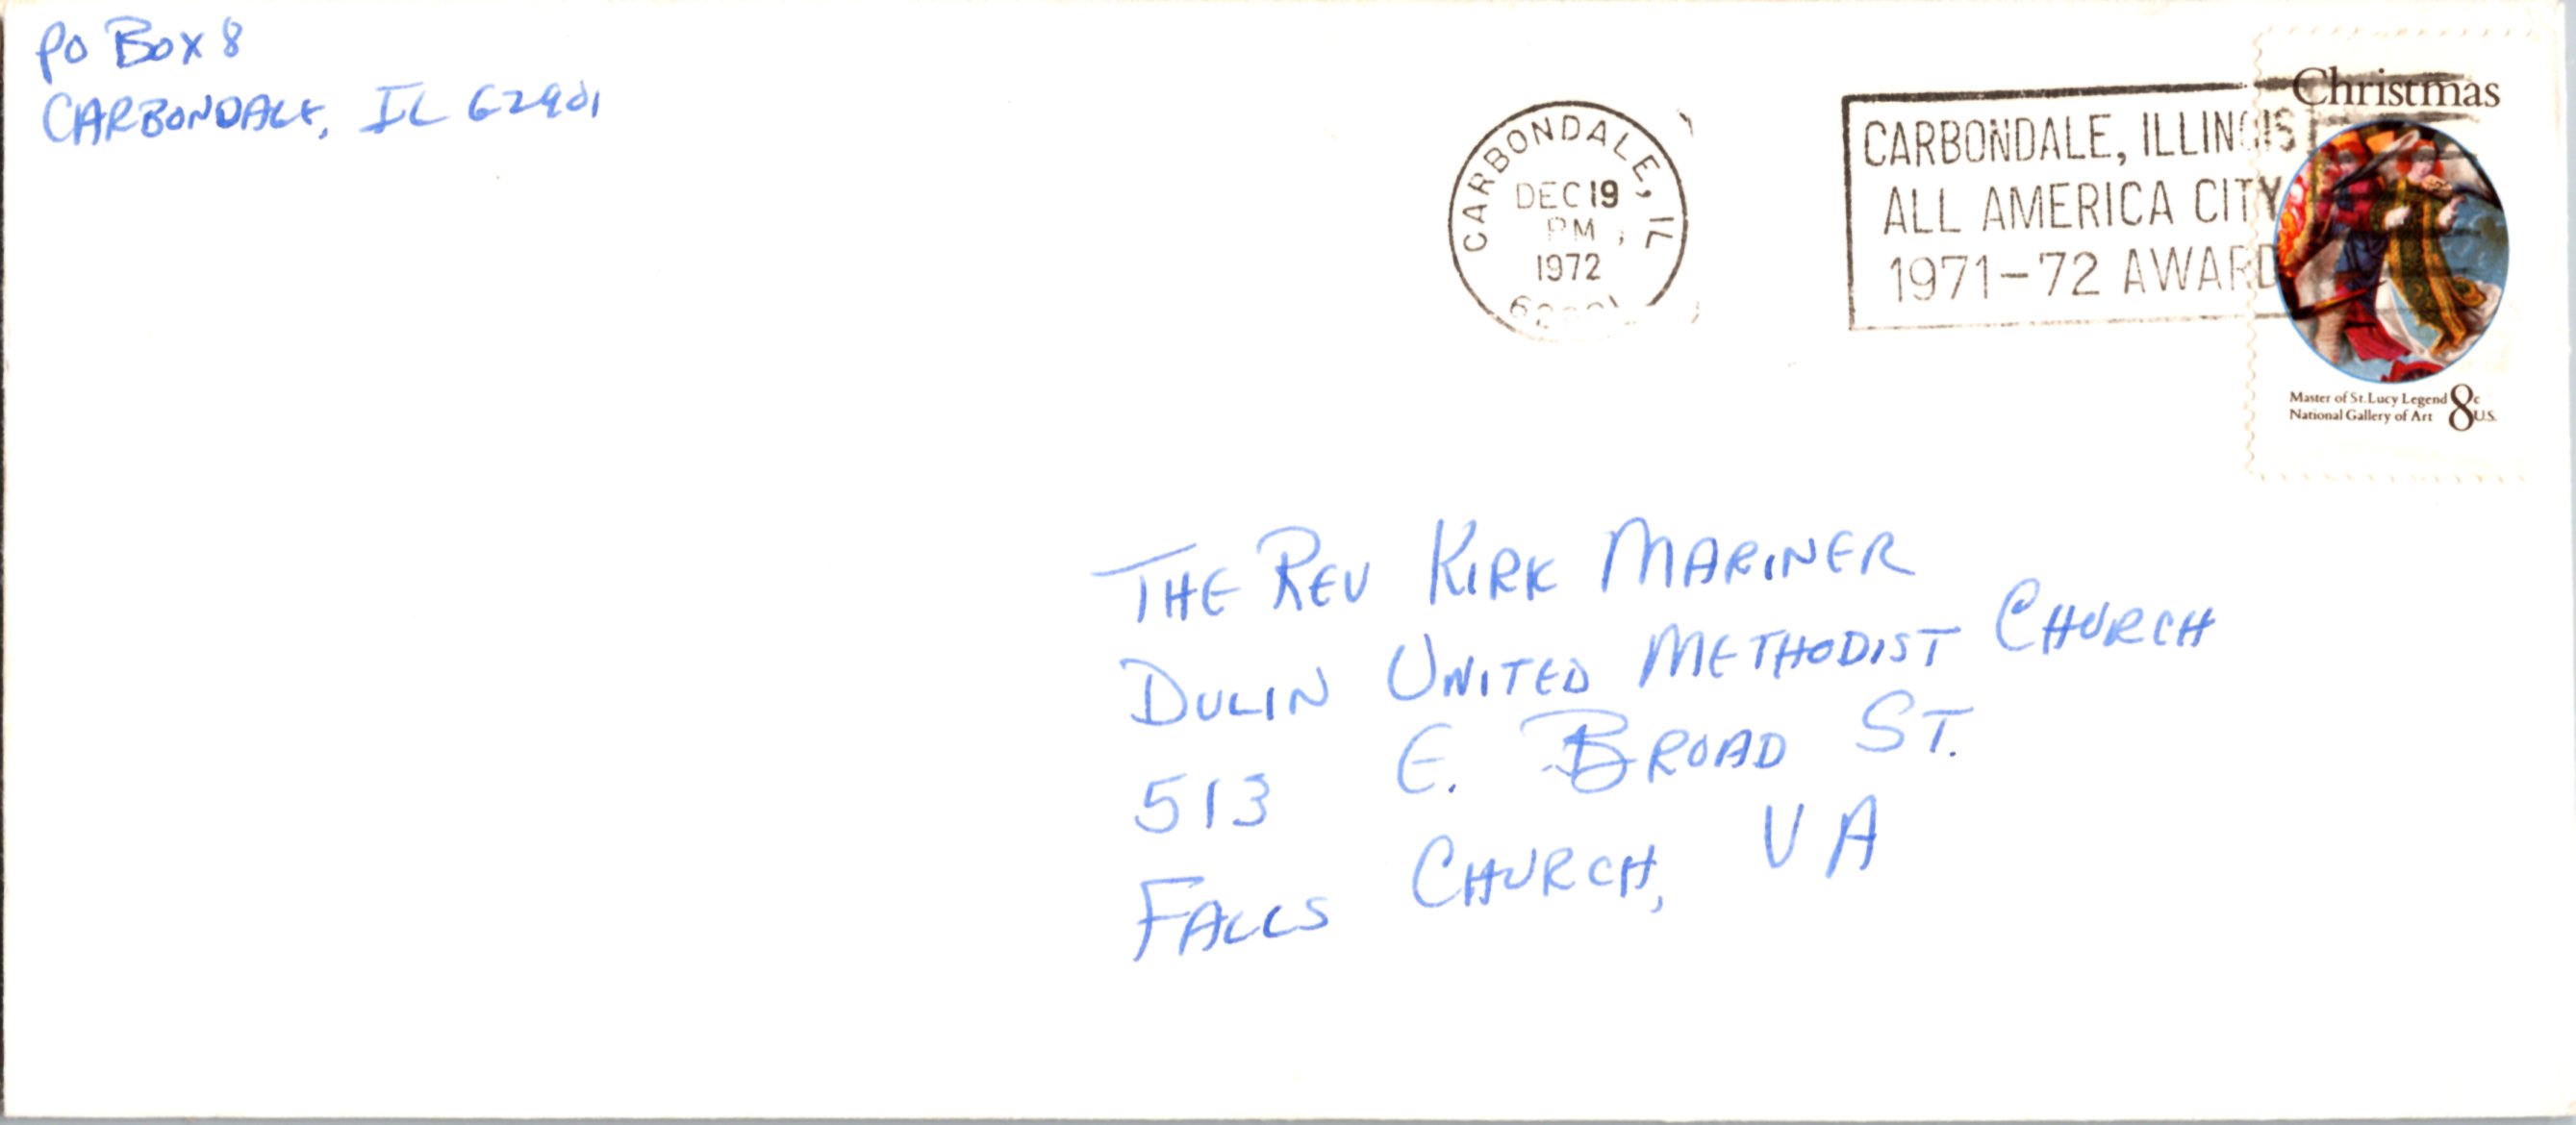 PO BOX 8
CARBONDALE, IL 62901
CARBONDALE, IL
DEC 19
PM
1972
CARBONDALE, ILLINOIS
ALL AMERICA CITY
1971-72 AWARD
Christmas
Master of St. Lucy Legend
National Gallery of Art
8c U.S.
THE REV KIRK MARINER
DULIN UNITED METHODIST CHURCH
513 E. BROAD ST.
FALLS CHURCH, VA